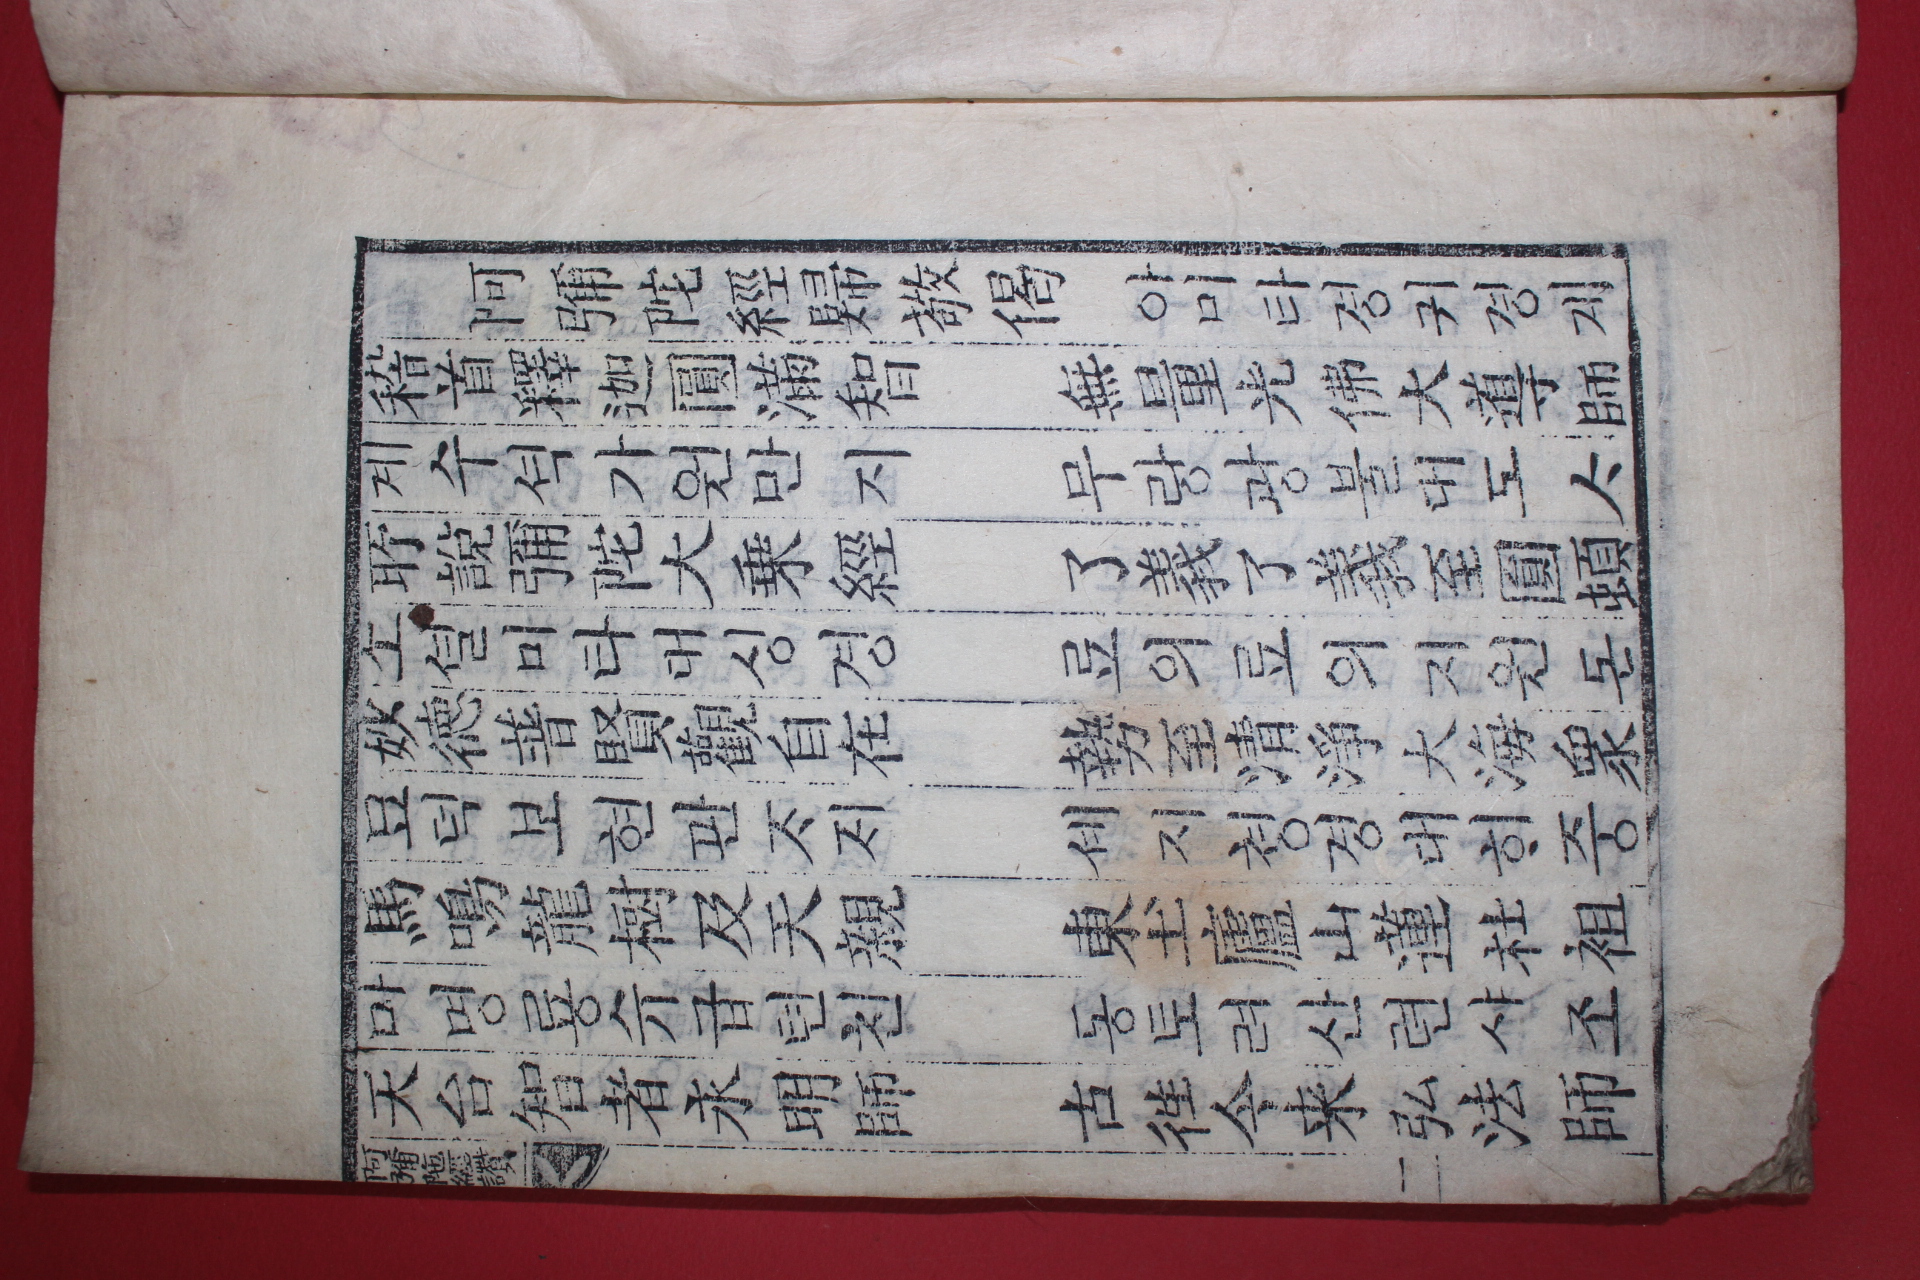 阿彌陀經歸敬偈 아미타경귀경게
稽首釋迦圓滿智 無量光佛大導師
계수셕가원만지 무량광불대도ᄉᆞ
所說彌陀大乗經 了義了義至圓頓
소셜미타대싱경 료의료의지원돈
妙德普賢觀自在 勢至清淨大海衆
묘덕보현관ᄌᆞ지 셰지쳥경대ᄒᆡ중
馬鳴龍樹及天親 東土廬山蓮社祖
마명룡슈급텬친 동토려산련샤조
天台智者永明師 古徃今来弘法師
阿彌陁經讃 二